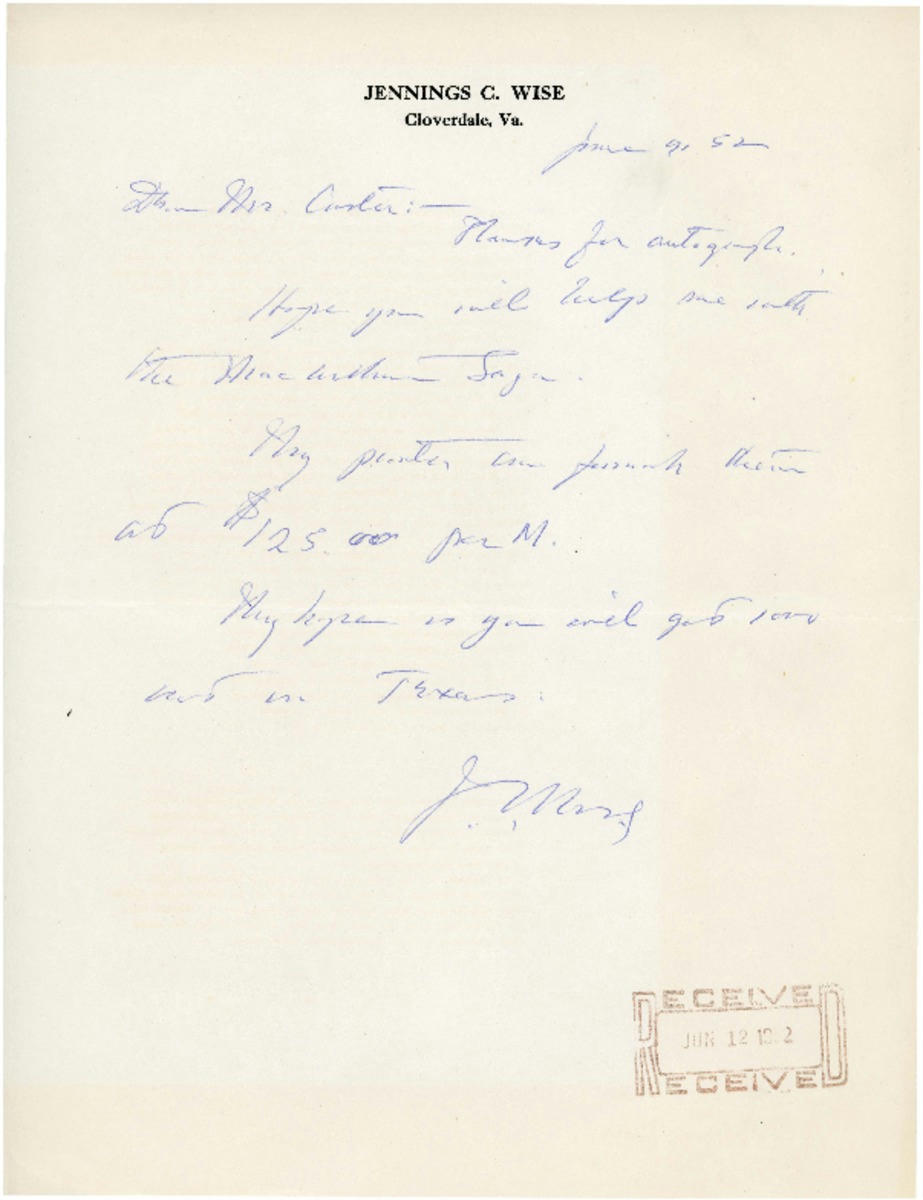 JENNINGS C. WISE
Cloverdale, Va.
June 9, 52
Dear Mr. Carter:—
Thanks for autograph.
Hope you will help me with
the MacArthur Saga.
My printer can furnish them
at $125.00 per M.
My hope is you will get 1000
out in Texas.
J. C. Wise
RECEIVED
JUN 12 19 2
RECEIVED